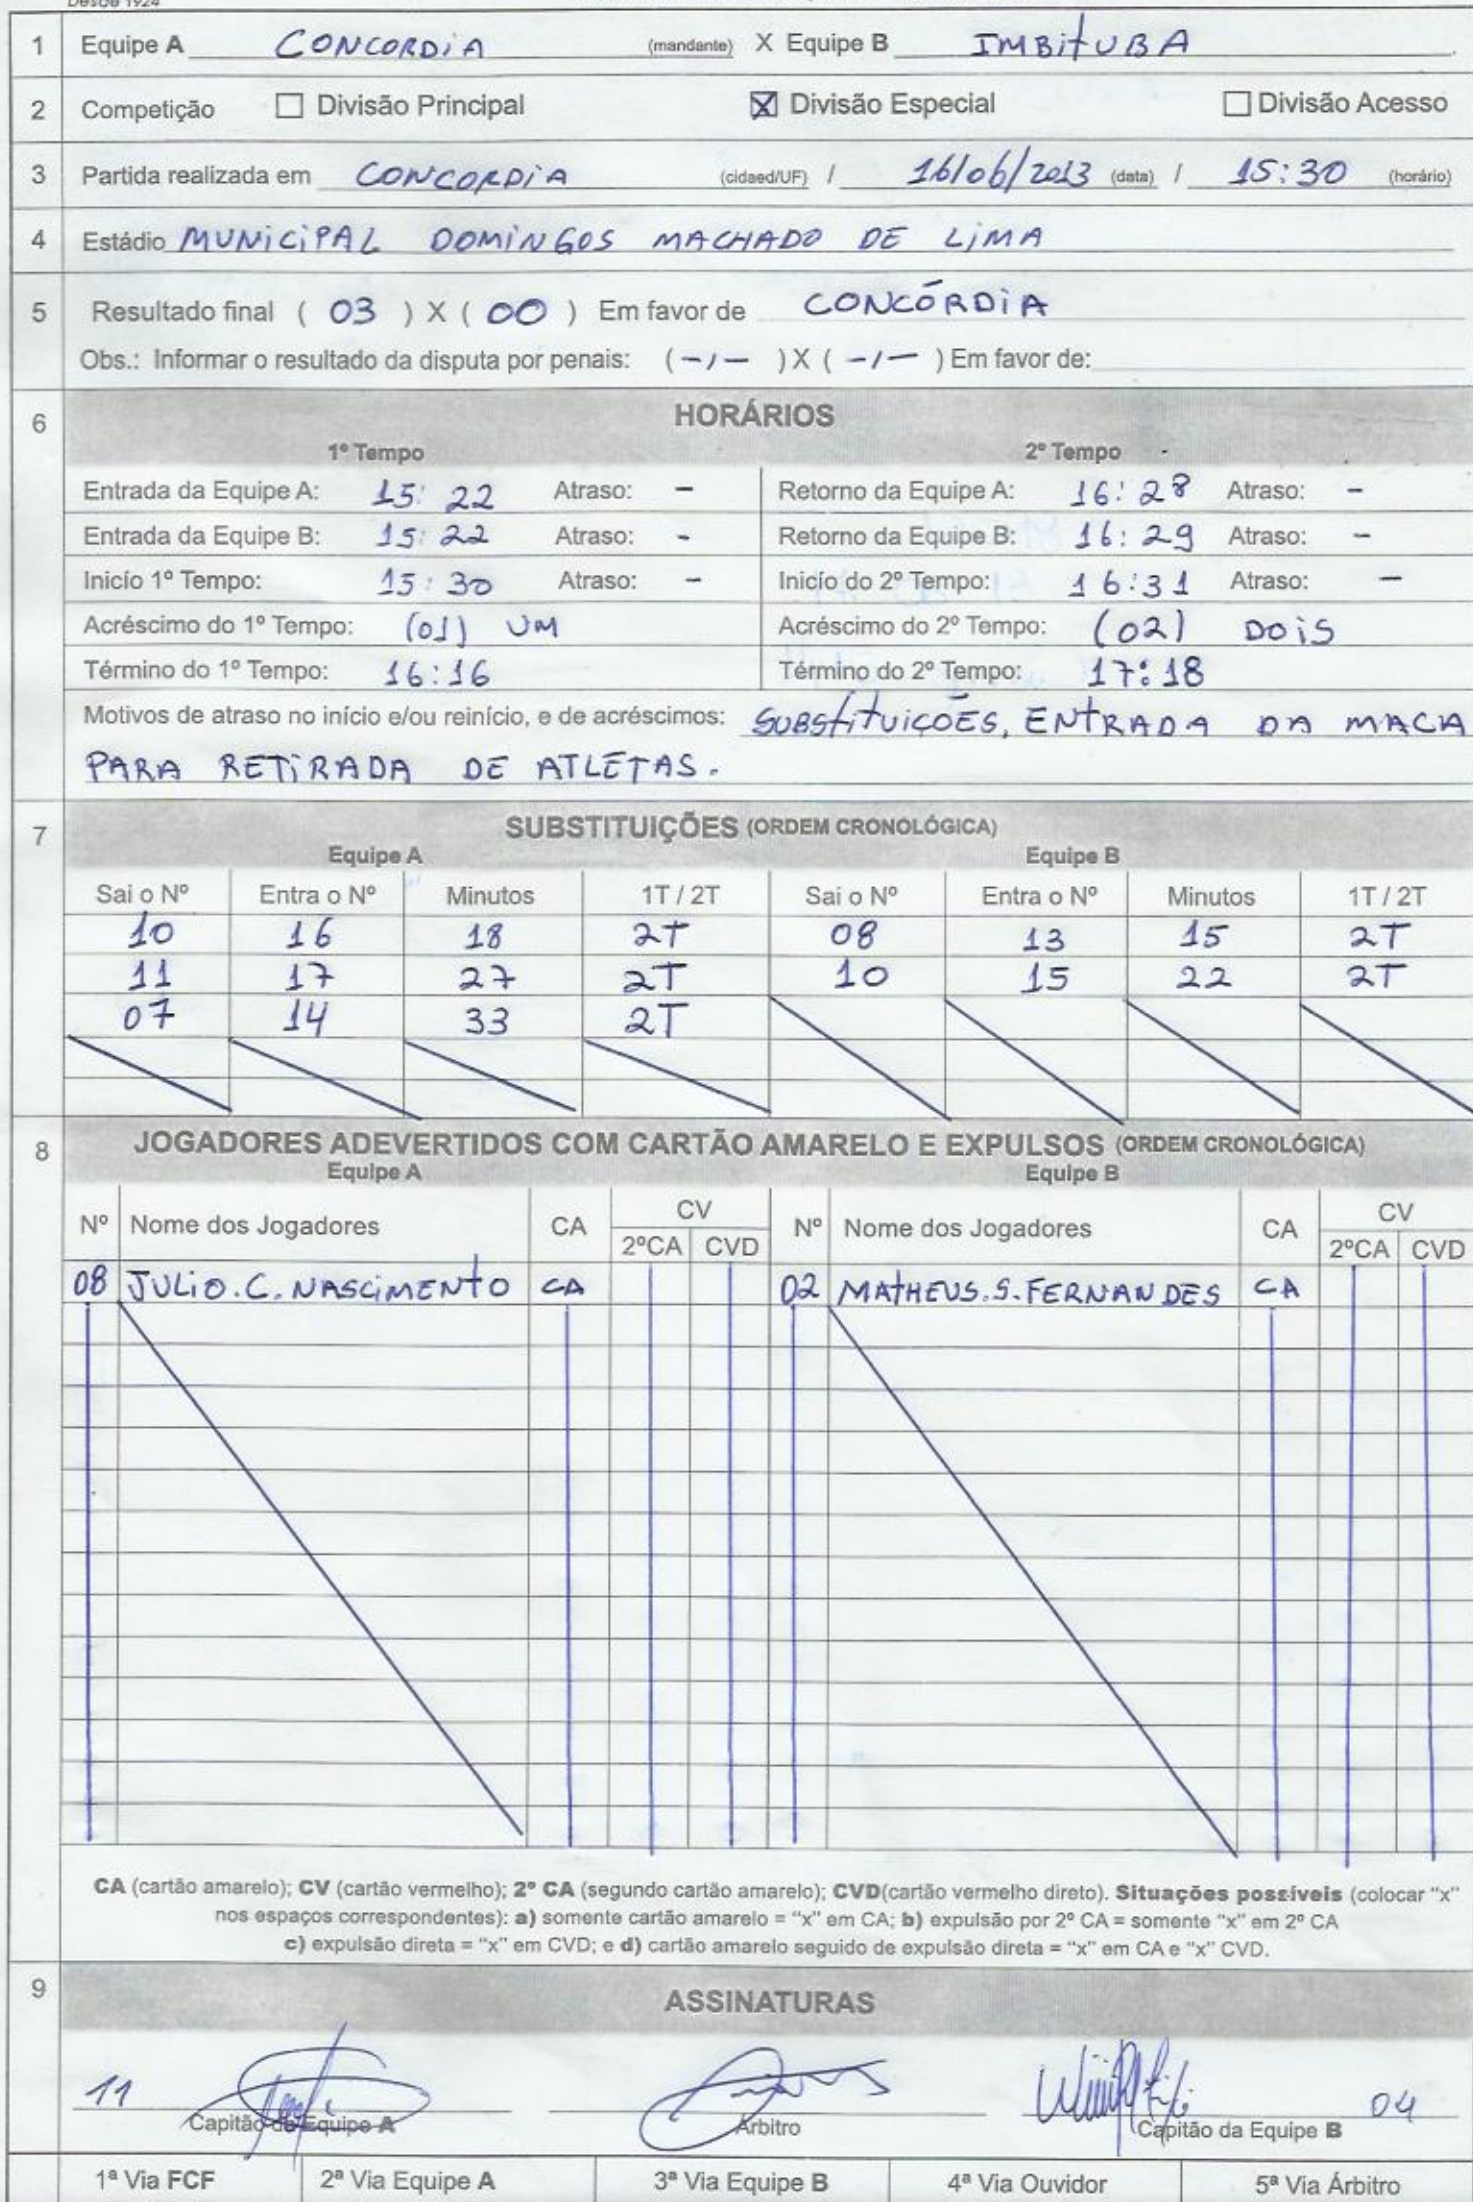 Desde 1924
1 Equipe A CONCORDiA (mandante) X Equipe B IMBitUBA
2 Competição ☐ Divisão Principal ☒ Divisão Especial ☐ Divisão Acesso
3 Partida realizada em CONCORDiA (cidaed/UF) / 16/06/2013 (data) / 15:30 (horário)
4 Estádio MUNiCiPAL DOMiNGOS MACHADO DE LiMA
5 Resultado final ( 03 ) X ( 00 ) Em favor de CONCÓRDiA
Obs.: Informar o resultado da disputa por penais: ( -/- ) X ( -/- ) Em favor de:
6 HORÁRIOS
1º Tempo 2º Tempo
Entrada da Equipe A: 15:22 Atraso: - Retorno da Equipe A: 16:28 Atraso: -
Entrada da Equipe B: 15:22 Atraso: - Retorno da Equipe B: 16:29 Atraso: -
Inicío 1º Tempo: 15:30 Atraso: - Inicío do 2º Tempo: 16:31 Atraso: -
Acréscimo do 1º Tempo: (01) UM Acréscimo do 2º Tempo: (02) DOiS
Término do 1º Tempo: 16:16 Término do 2º Tempo: 17:18
Motivos de atraso no início e/ou reinício, e de acréscimos: SUBStitUiÇÕES, ENtRADA DA MACA
PARA RETiRADA DE ATLETAS.
7 SUBSTITUIÇÕES (ORDEM CRONOLÓGICA)
Equipe A Equipe B
Sai o Nº Entra o Nº Minutos 1T / 2T Sai o Nº Entra o Nº Minutos 1T / 2T
10 16 18 2T 08 13 15 2T
11 17 27 2T 10 15 22 2T
07 14 33 2T
8 JOGADORES ADEVERTIDOS COM CARTÃO AMARELO E EXPULSOS (ORDEM CRONOLÓGICA)
Equipe A Equipe B
Nº Nome dos Jogadores CA CV 2ºCA CVD Nº Nome dos Jogadores CA CV 2ºCA CVD
08 JULiO.C.NASCiMENtO CA 02 MAtHEUS.S.FERNANDES CA
CA (cartão amarelo); CV (cartão vermelho); 2º CA (segundo cartão amarelo); CVD(cartão vermelho direto). Situações possíveis (colocar "x"
nos espaços correspondentes): a) somente cartão amarelo = "x" em CA; b) expulsão por 2º CA = somente "x" em 2º CA
c) expulsão direta = "x" em CVD; e d) cartão amarelo seguido de expulsão direta = "x" em CA e "x" CVD.
9 ASSINATURAS
11 04
Capitão da Equipe A Árbitro Capitão da Equipe B
1ª Via FCF 2ª Via Equipe A 3ª Via Equipe B 4ª Via Ouvidor 5ª Via Árbitro